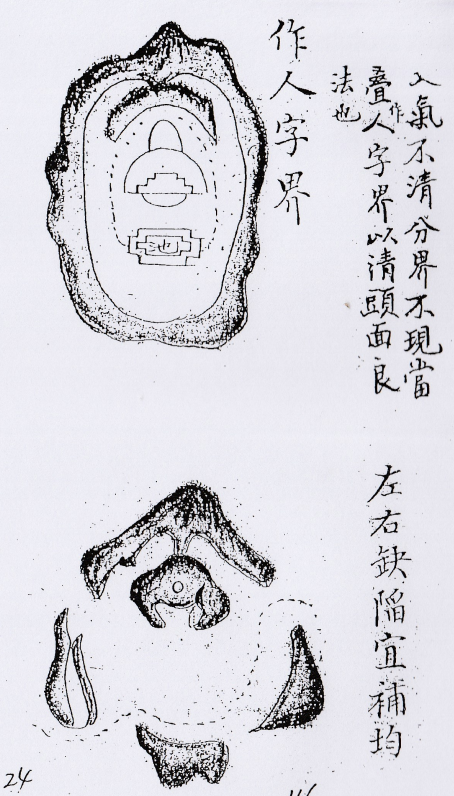 入氣不清分界不現當
叠作人字界以清頭面良
法也
作人字界
池
左右缺陷宜補均
24